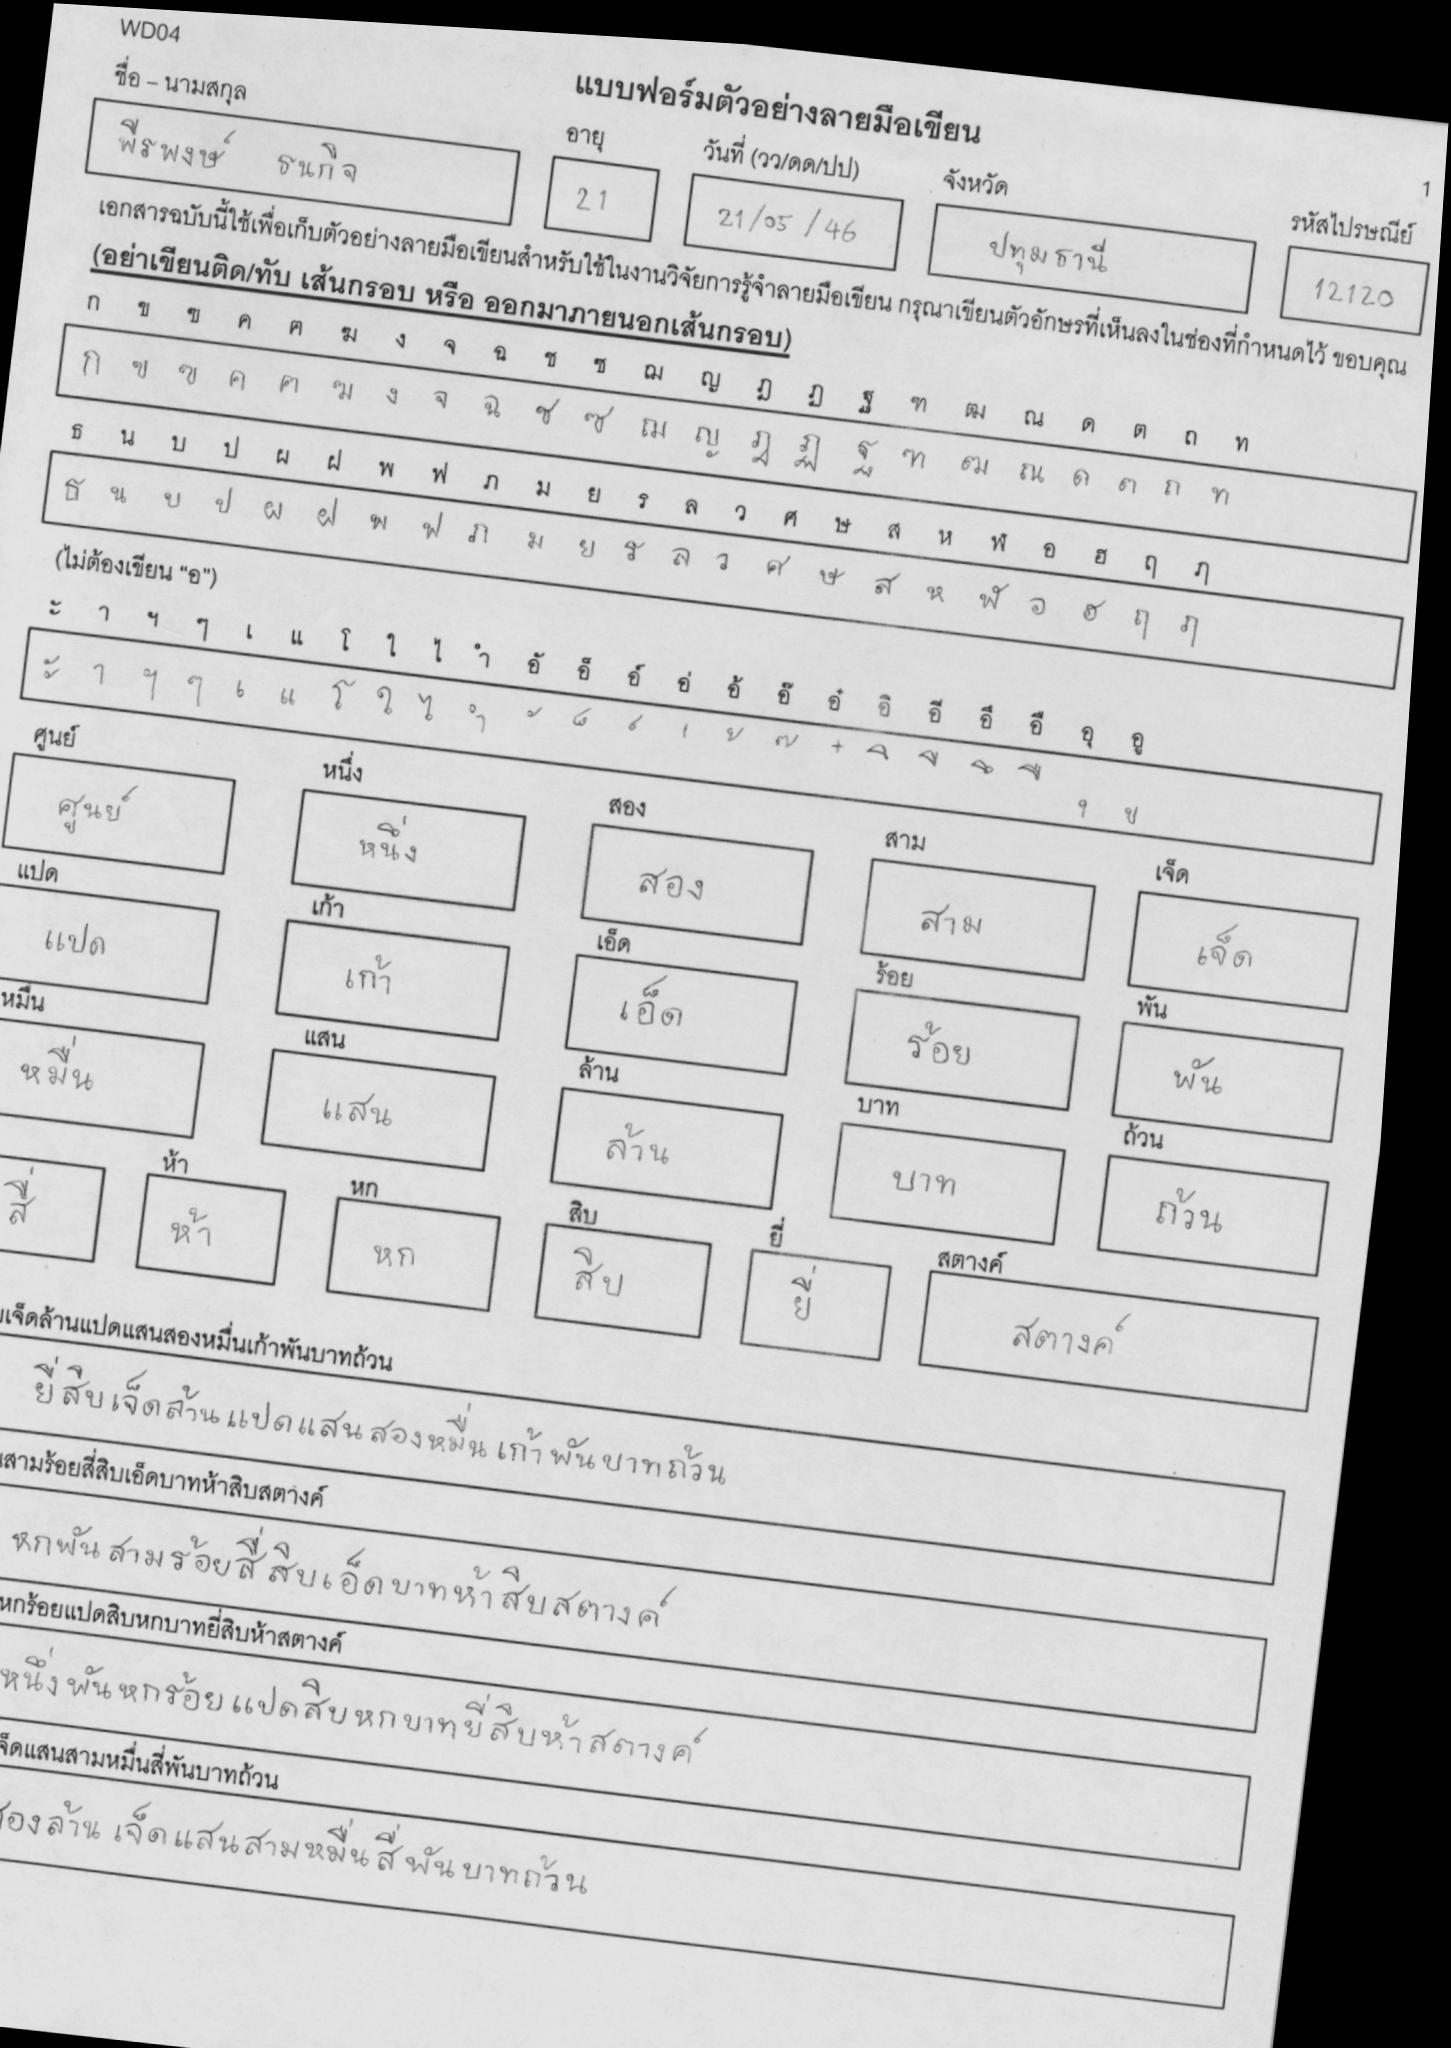 WD04
แบบฟอร์มตัวอย่างลายมือเขียน
1
ชื่อ – นามสกุล อายุ วันที่ (วว/ดด/ปป) จังหวัด รหัสไปรษณีย์
พีรพงษ์ ธนกิจ 21 21/05/46 ปทุมธานี 12120
เอกสารฉบับนี้ใช้เพื่อเก็บตัวอย่างลายมือเขียนสำหรับใช้ในงานวิจัยการรู้จำลายมือเขียน กรุณาเขียนตัวอักษรที่เห็นลงในช่องที่กำหนดไว้ ขอบคุณ
(อย่าเขียนติด/ทับ เส้นกรอบ หรือ ออกมาภายนอกเส้นกรอบ)
ก ข ฃ ค ฅ ฆ ง จ ฉ ช ซ ฌ ญ ฎ ฏ ฐ ฑ ฒ ณ ด ต ถ ท
ก ข ฃ ค ฅ ฆ ง จ ฉ ช ซ ฌ ญ ฎ ฏ ฐ ฑ ฒ ณ ด ต ถ ท
ธ น บ ป ผ ฝ พ ฟ ภ ม ย ร ล ว ศ ษ ส ห ฬ อ ฮ ฤ ฦ
ธ น บ ป ผ ฝ พ ฟ ภ ม ย ร ล ว ศ ษ ส ห ฬ อ ฮ ฤ ฦ
(ไม่ต้องเขียน "อ")
ะ า ฯ ๆ เ แ โ ใ ไ ำ อั อ็ อ์ อ่ อ้ อ๊ อ๋ อิ อี อึ อื อุ อู
ะ า ฯ ๆ เ แ โ ใ ไ ำ ั ็ ์ ่ ้ ๊ ๋ ิ ี ึ ื ุ ู
ศูนย์ หนึ่ง สอง สาม เจ็ด
ศูนย์ หนึ่ง สอง สาม เจ็ด
แปด เก้า เอ็ด ร้อย พัน
แปด เก้า เอ็ด ร้อย พัน
หมื่น แสน ล้าน บาท ถ้วน
หมื่น แสน ล้าน บาท ถ้วน
ห้า หก สิบ ยี่ สตางค์
สี่ ห้า หก สิบ ยี่ สตางค์
เจ็ดล้านแปดแสนสองหมื่นเก้าพันบาทถ้วน
ยี่สิบเจ็ดล้านแปดแสนสองหมื่นเก้าพันบาทถ้วน
สามร้อยสี่สิบเอ็ดบาทห้าสิบสตางค์
หกพันสามร้อยสี่สิบเอ็ดบาทห้าสิบสตางค์
หกร้อยแปดสิบหกบาทยี่สิบห้าสตางค์
หนึ่งพันหกร้อยแปดสิบหกบาทยี่สิบห้าสตางค์
จ็ดแสนสามหมื่นสี่พันบาทถ้วน
สองล้านเจ็ดแสนสามหมื่นสี่พันบาทถ้วน